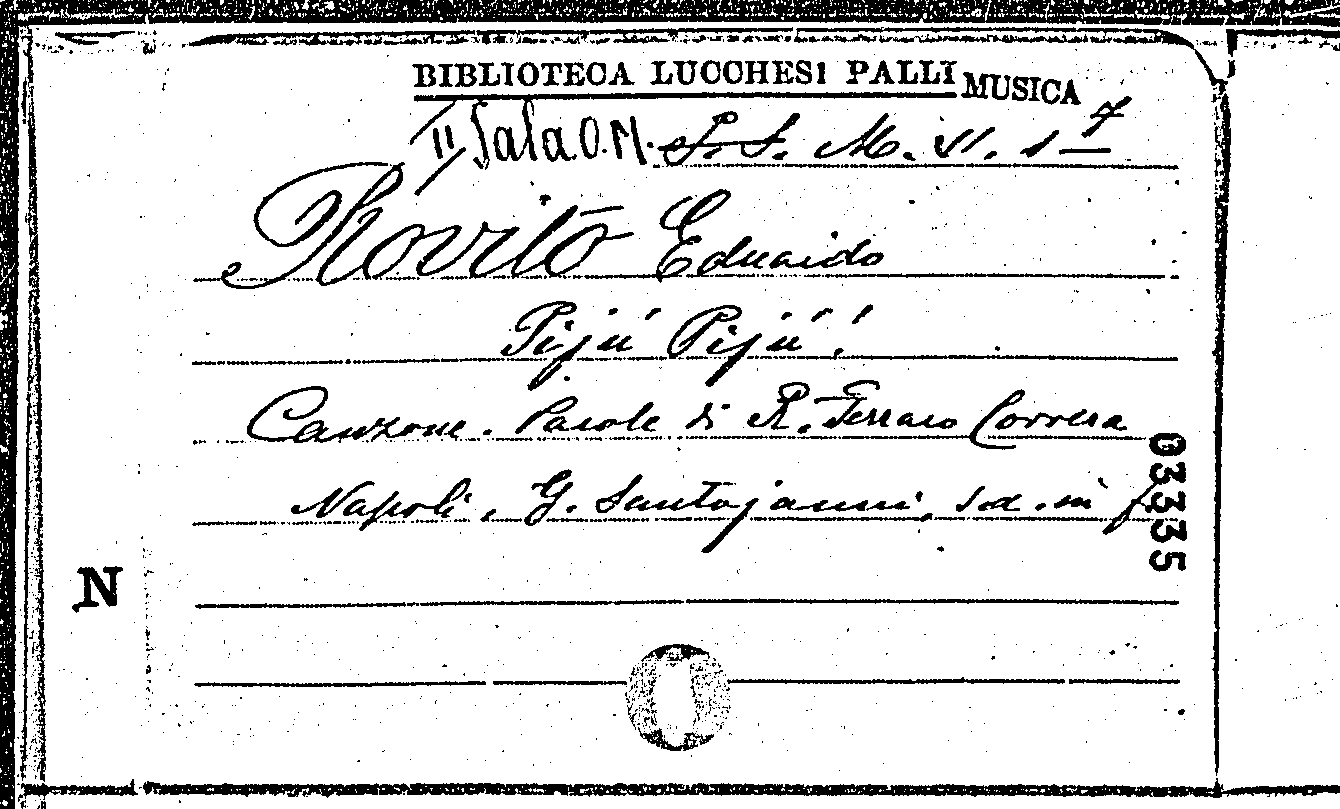 BIBLIOTECA LUCCHESI PALLI MUSICA
II Sala O. M. S. S. M. VI. 1 7
Rovito Eduardo
Pijù Pijù!
Canzone. Parole di R. Ferraro Correra
Napoli. G. Santojanni, s.d. in f.
03335
N